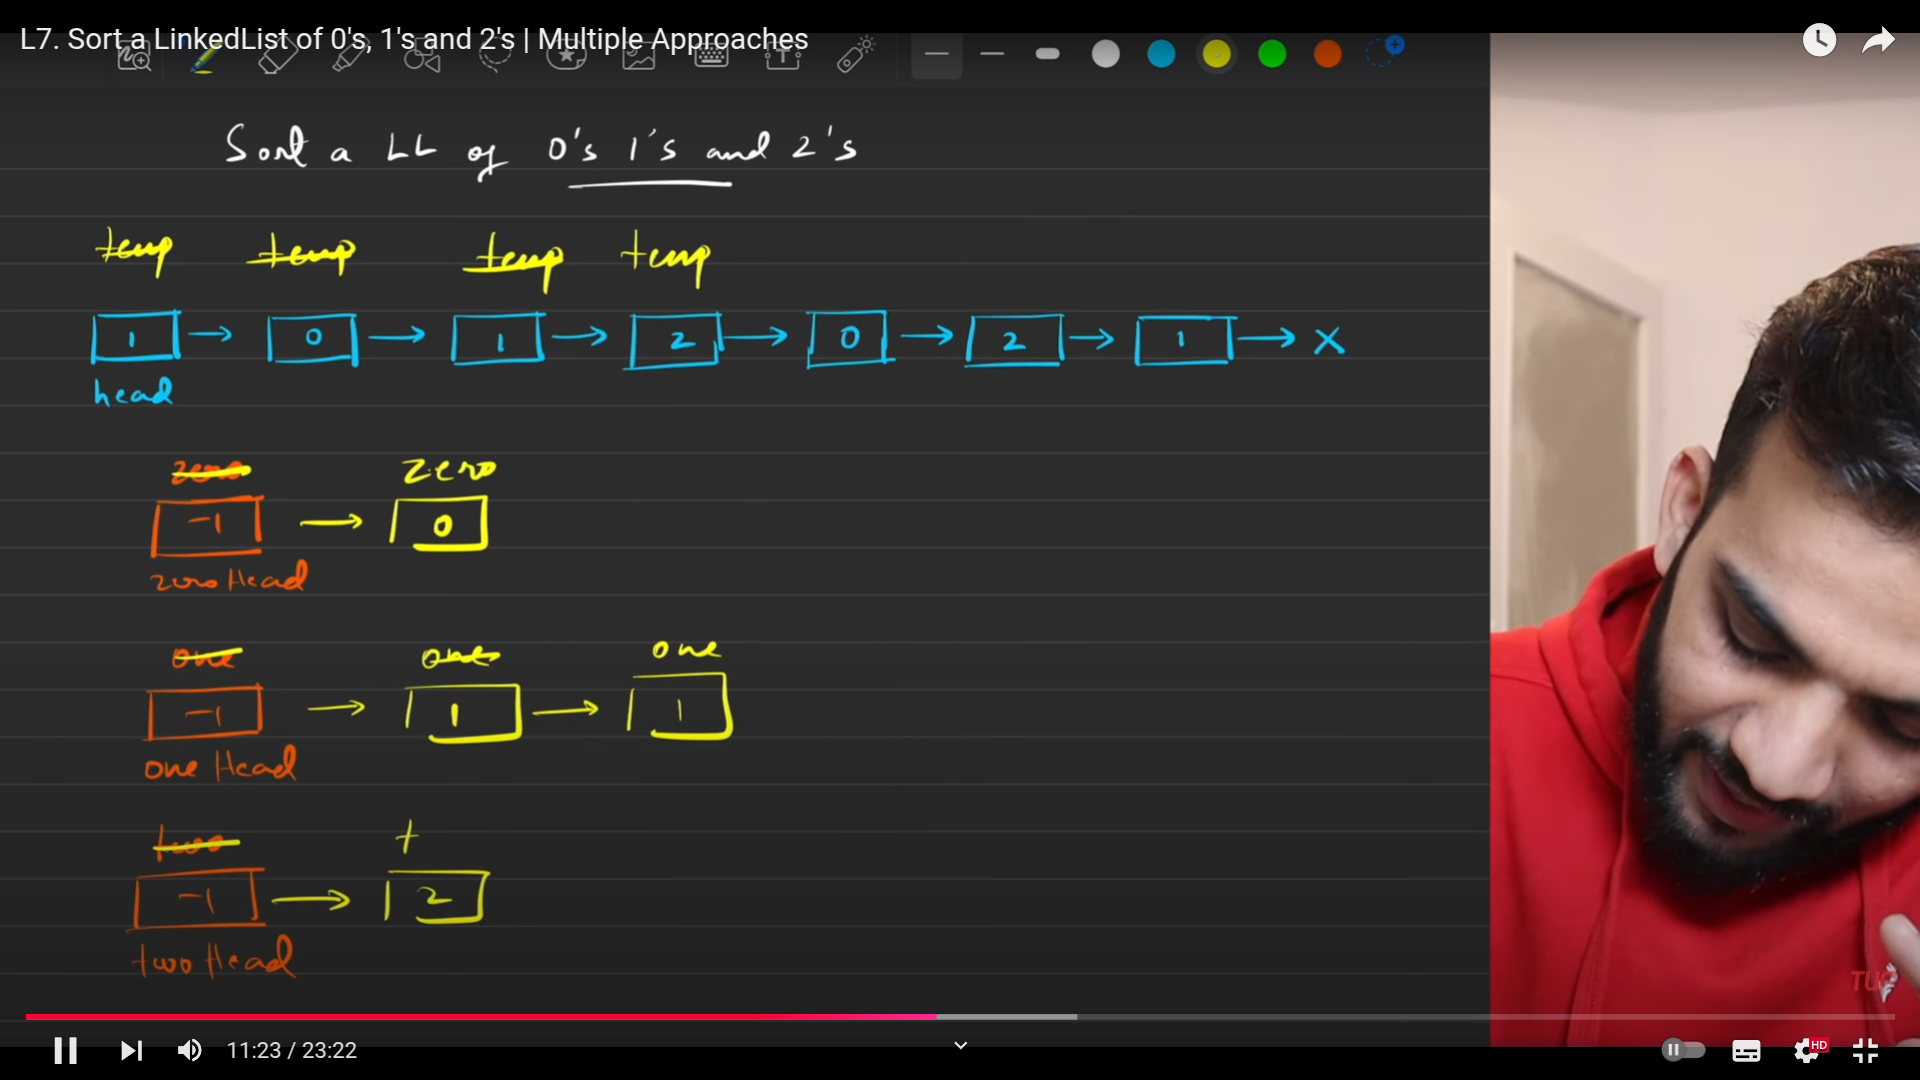 L7. Sort a LinkedList of 0's, 1's and 2's | Multiple Approaches
Sort a LL of 0's 1's and 2's
temp temp temp temp
1 → 0 → 1 → 2 → 0 → 2 → 1 → X
head
zero zero
-1 → 0
zeroHead
one one one
-1 → 1 → 1
one Head
two t
-1 → 2
two Head
TUF
11:23 / 23:22
HD